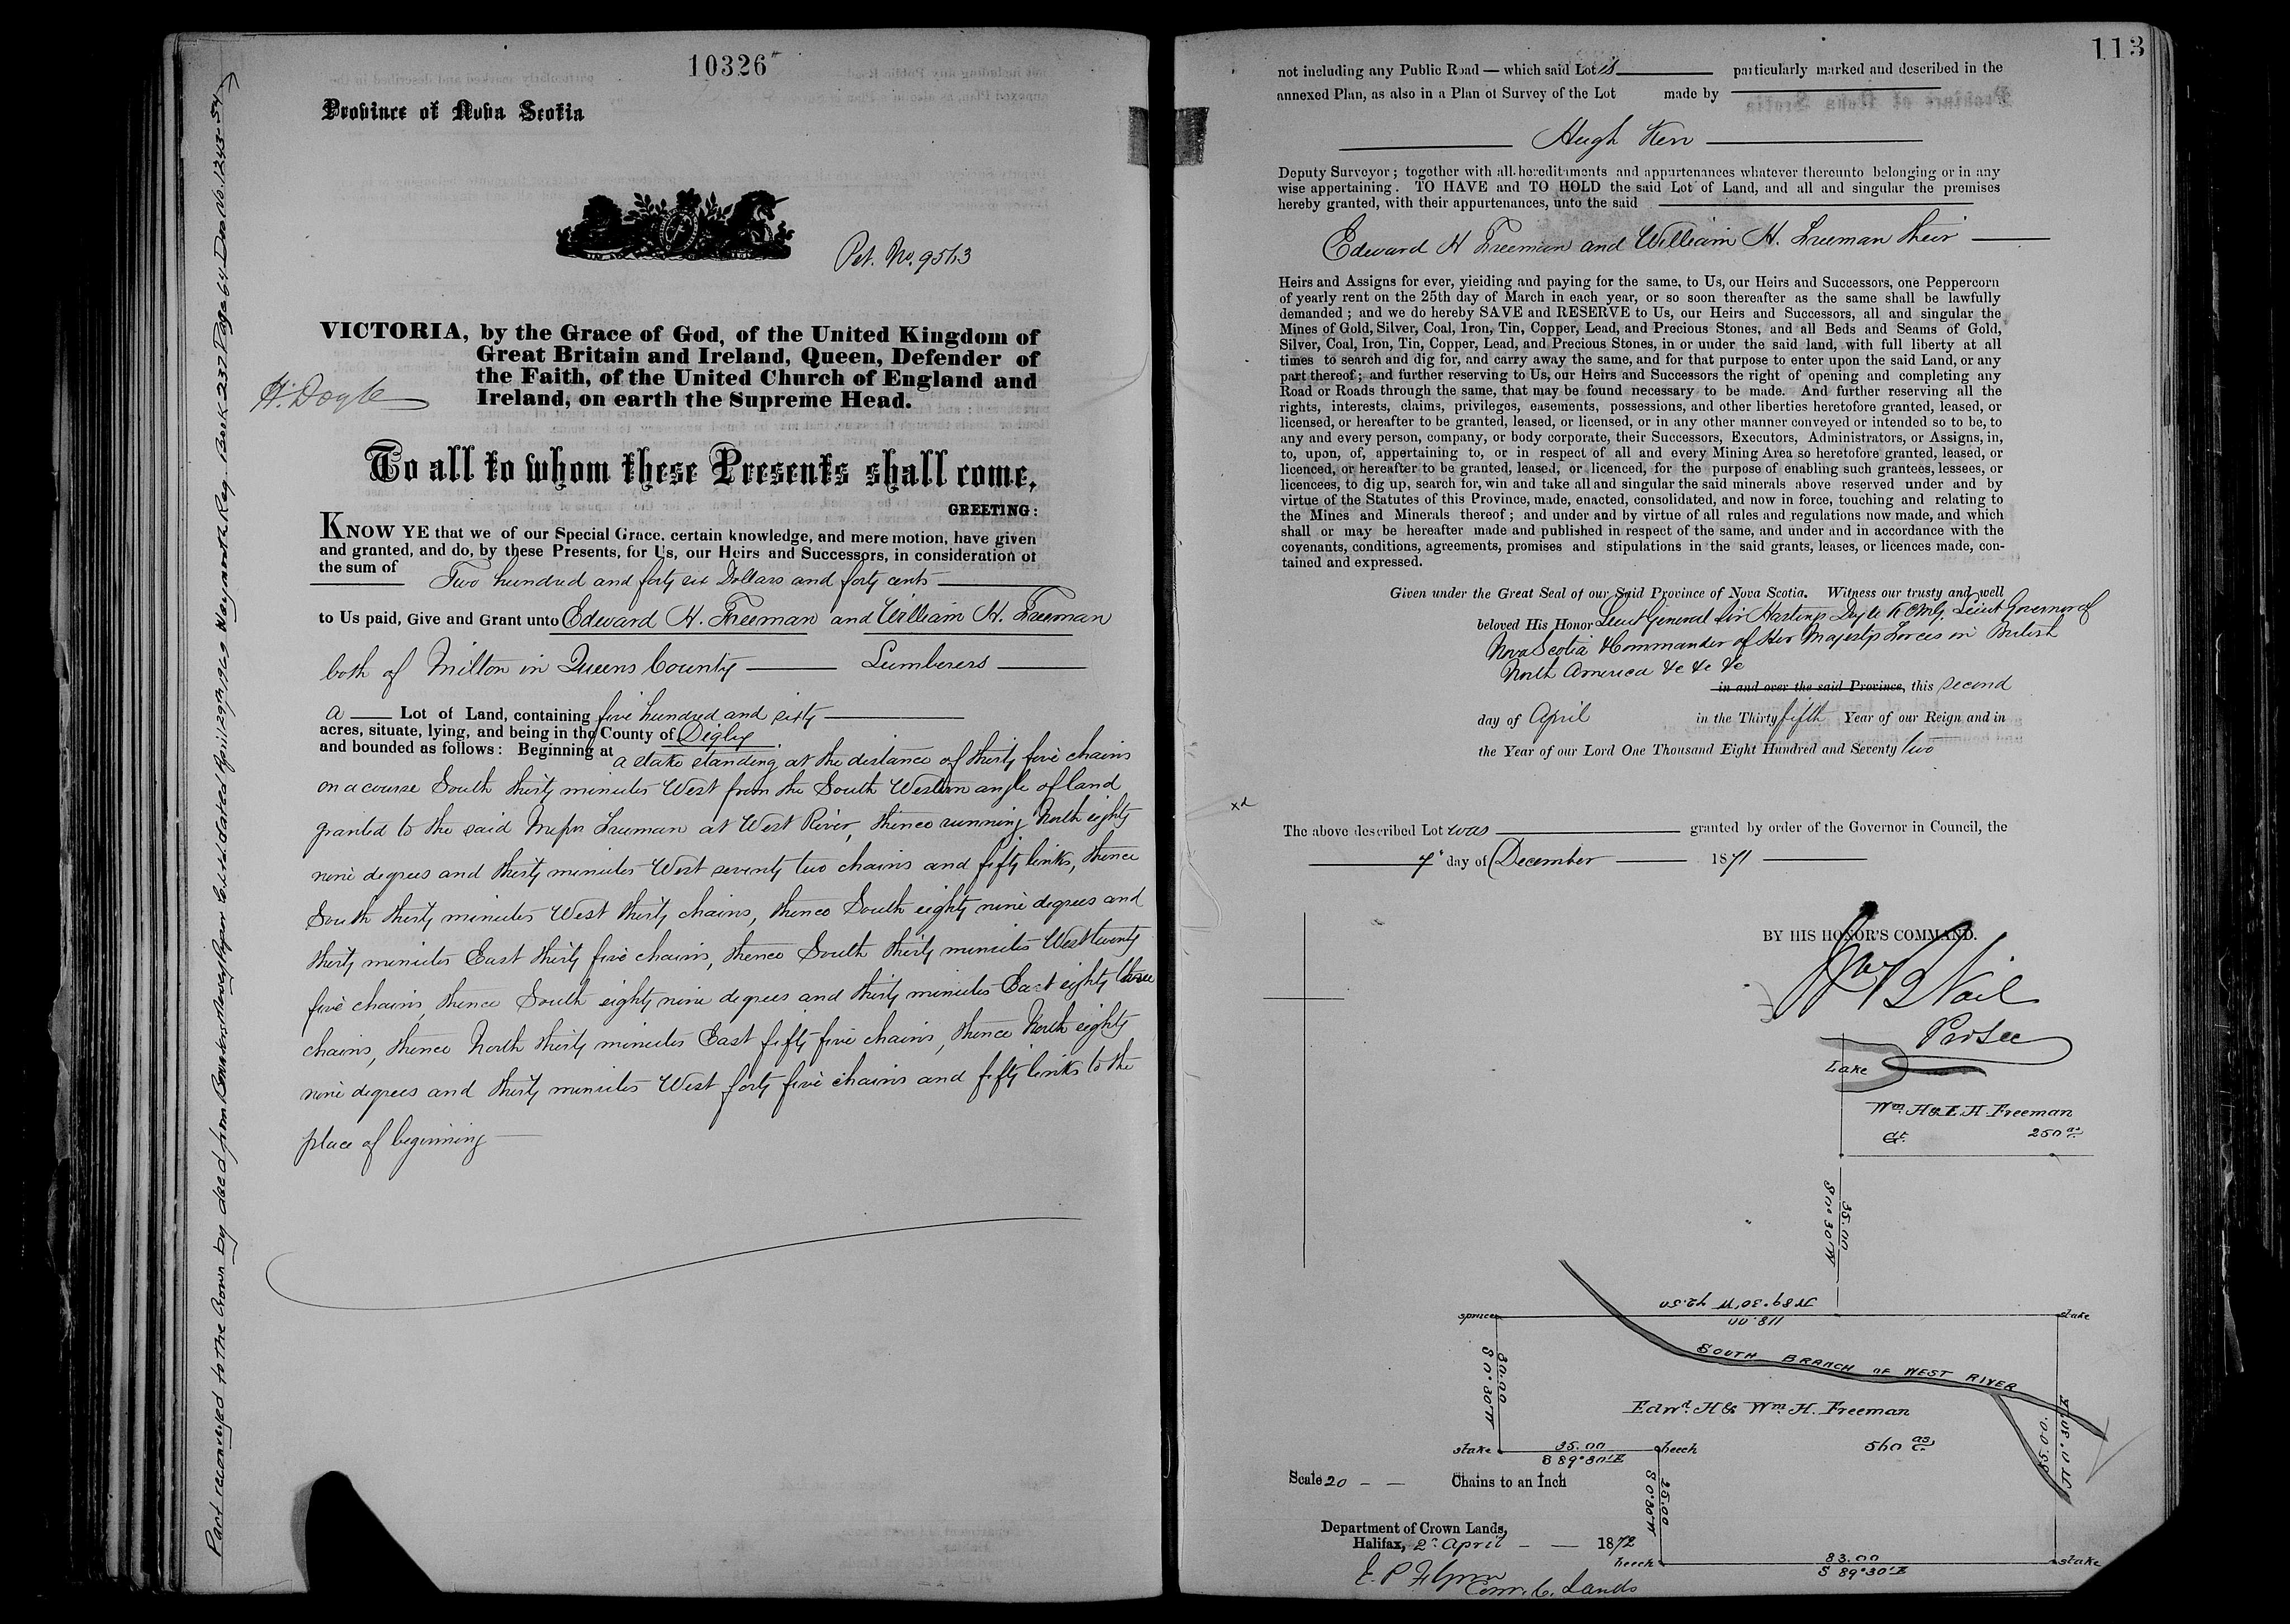 10326
Province of Nova Scotia
Pet. No. 9563
VICTORIA, by the Grace of God, of the United Kingdom of
Great Britain and Ireland, Queen, Defender of
the Faith, of the United Church of England and
Ireland, on earth the Supreme Head.
H. Doyle
To all to whom these Presents shall come,
GREETING:
KNOW YE that we of our Special Grace, certain knowledge, and mere motion, have given
and granted, and do, by these Presents, for Us, our Heirs and Successors, in consideration of
the sum of Two hundred and forty six Dollars and forty cents
to Us paid, Give and Grant unto Edward H. Freeman and William H. Freeman
both of Milton in Queens County Lumberers
a Lot of Land, containing five hundred and sixty
acres, situate, lying, and being in the County of Digby
and bounded as follows: Beginning at a stake standing at the distance of thirty five chains
on a course South thirty minutes West from the South Western angle of land
granted to the said Messrs Freeman at West River, thence running North eighty
nine degrees and thirty minutes West seventy two chains and fifty links, thence
South thirty minutes West thirty chains, thence South eighty nine degrees and
thirty minutes East thirty five chains, thence South thirty minutes West twenty
five chains, thence South eighty nine degrees and thirty minutes East eighty three
chains, thence North thirty minutes East fifty five chains, thence North eighty
nine degrees and thirty minutes West forty five chains and fifty links to the
place of beginning
Part reconveyed to the Crown by deed from Bowaters Mersey Paper Co. Ltd. dated April 29th 1969 Weymouth Reg. Book 237 Page 64 Doc No. 1243-54
113
not including any Public Road — which said Lot is particularly marked and described in the
annexed Plan, as also in a Plan of Survey of the Lot made by
Hugh Kerr
Deputy Surveyor; together with all hereditaments and appurtenances whatever thereunto belonging or in any
wise appertaining. TO HAVE and TO HOLD the said Lot of Land, and all and singular the premises
hereby granted, with their appurtenances, unto the said
Edward H Freeman and William H. Freeman their
Heirs and Assigns for ever, yieiding and paying for the same, to Us, our Heirs and Successors, one Peppercorn
of yearly rent on the 25th day of March in each year, or so soon thereafter as the same shall be lawfully
demanded; and we do hereby SAVE and RESERVE to Us, our Heirs and Successors, all and singular the
Mines of Gold, Silver, Coal, Iron, Tin, Copper, Lead, and Precious Stones, and all Beds and Seams of Gold,
Silver, Coal, Iron, Tin, Copper, Lead, and Precious Stones, in or under the said land, with full liberty at all
times to search and dig for, and carry away the same, and for that purpose to enter upon the said Land, or any
part thereof; and further reserving to Us, our Heirs and Successors the right of opening and completing any
Road or Roads through the same, that may be found necessary to be made. And further reserving all the
rights, interests, claims, privileges, easements, possessions, and other liberties heretofore granted, leased, or
licensed, or hereafter to be granted, leased, or licensed, or in any other manner conveyed or intended so to be, to
any and every person, company, or body corporate, their Successors, Executors, Administrators, or Assigns, in,
to, upon, of, appertaining to, or in respect of all and every Mining Area so heretofore granted, leased, or
licenced, or hereafter to be granted, leased, or licenced, for the purpose of enabling such grantees, lessees, or
licencees, to dig up, search for, win and take all and singular the said minerals above reserved under and by
virtue of the Statutes of this Province, made, enacted, consolidated, and now in force, touching and relating to
the Mines and Minerals thereof; and under and by virtue of all rules and regulations now made, and which
shall or may be hereafter made and published in respect of the same, and under and in accordance with the
covenants, conditions, agreements, promises and stipulations in the said grants, leases, or licences made, con-
tained and expressed.
Given under the Great Seal of our Said Province of Nova Scotia. Witness our trusty and well
beloved His Honor Lieut General Sir Hastings Doyle K.C.M.G. Lieut Governor of
Nova Scotia & Commander of Her Majestys Forces in British
North America &c &c &c
in and over the said Province, this second
day of April in the Thirty fifth Year of our Reign and in
the Year of our Lord One Thousand Eight Hundred and Seventy two
The above described Lot was granted by order of the Governor in Council, the
7" day of December 1871
BY HIS HONOR'S COMMAND.
Prov Sec
Lake
Wm. H & E. H. Freeman
Gt. 250 as
35.00
S 0° 30' W
N 89° 30' W 72.50
spruce
118.00
stake
30.00
S 0° 30' W
SOUTH BRANCH OF WEST RIVER
Edwd. H & Wm. H. Freeman
560 acs
N 0° 30' E
55.00
stake
35.00
beech
S 89° 30' E
25.00
S 0° 30' W
Scale 20 Chains to an Inch
Department of Crown Lands,
Halifax, 2d April 1872
beech
83.00
stake
S 89° 30' E
E. P. Flynn
Com. C. Lands